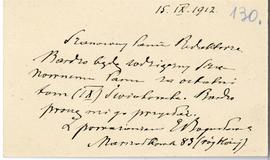 15 IX. 1912
130.
Szanowny Panie Redaktorze
Bardzo będę wdzięczny Sza-
nownemu Panu za ostatni
tom (IX) Światowita. Bardzo
proszę mi go przysłać.
Z poważaniem E
Marszałkowska 83